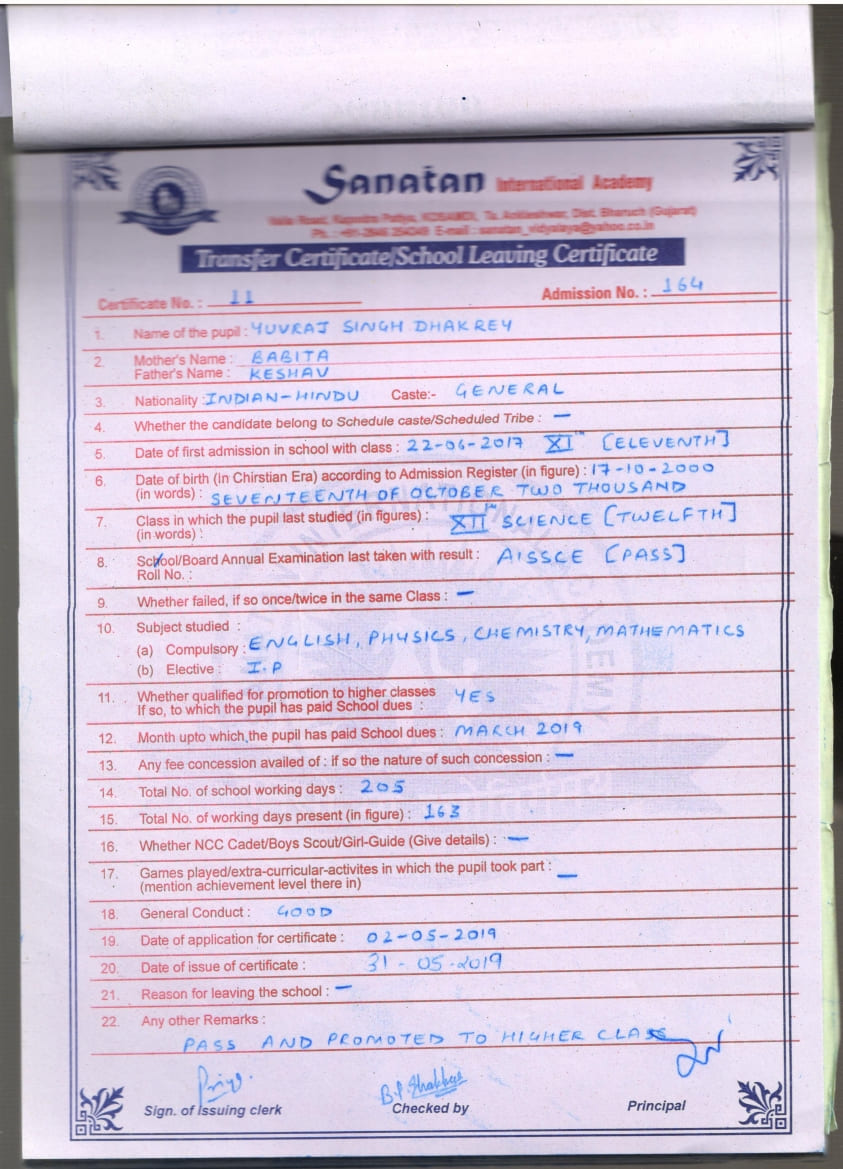 Sanatan International Academy
Valia Road, Kapodra Patiya, KOSAMDI, Ta. Ankleshwar, Dist. Bharuch (Gujarat)
E-mail : sanatan_vidyalaya@yahoo.co.in
Transfer Certificate/School Leaving Certificate
Certificate No. : 11 Admission No. : 164
1. Name of the pupil : YUVRAJ SINGH DHAKREY
2. Mother's Name : BABITA
Father's Name : KESHAV
3. Nationality : INDIAN-HINDU Caste:- GENERAL
4. Whether the candidate belong to Schedule caste/Scheduled Tribe : —
5. Date of first admission in school with class : 22-06-2017 XI TH [ELEVENTH]
6. Date of birth (in Chirstian Era) according to Admission Register (in figure) : 17-10-2000
(in words) : SEVENTEENTH OF OCTOBER TWO THOUSAND
7. Class in which the pupil last studied (in figures) : XII TH SCIENCE [TWELFTH]
(in words) :
8. School/Board Annual Examination last taken with result : AISSCE [PASS]
Roll No. :
9. Whether failed, if so once/twice in the same Class : —
10. Subject studied :
(a) Compulsory : ENGLISH, PHYSICS, CHEMISTRY, MATHEMATICS
(b) Elective : I.P
11. Whether qualified for promotion to higher classes YES
If so, to which the pupil has paid School dues :
12. Month upto which the pupil has paid School dues : MARCH 2019
13. Any fee concession availed of : if so the nature of such concession : —
14. Total No. of school working days : 205
15. Total No. of working days present (in figure) : 163
16. Whether NCC Cadet/Boys Scout/Girl-Guide (Give details) : —
17. Games played/extra-curricular-activites in which the pupil took part : —
(mention achievement level there in)
18. General Conduct : GOOD
19. Date of application for certificate : 02-05-2019
20. Date of issue of certificate : 31-05-2019
21. Reason for leaving the school : —
22. Any other Remarks :
PASS AND PROMOTED TO HIGHER CLASS
Sign. of Issuing clerk Checked by Principal